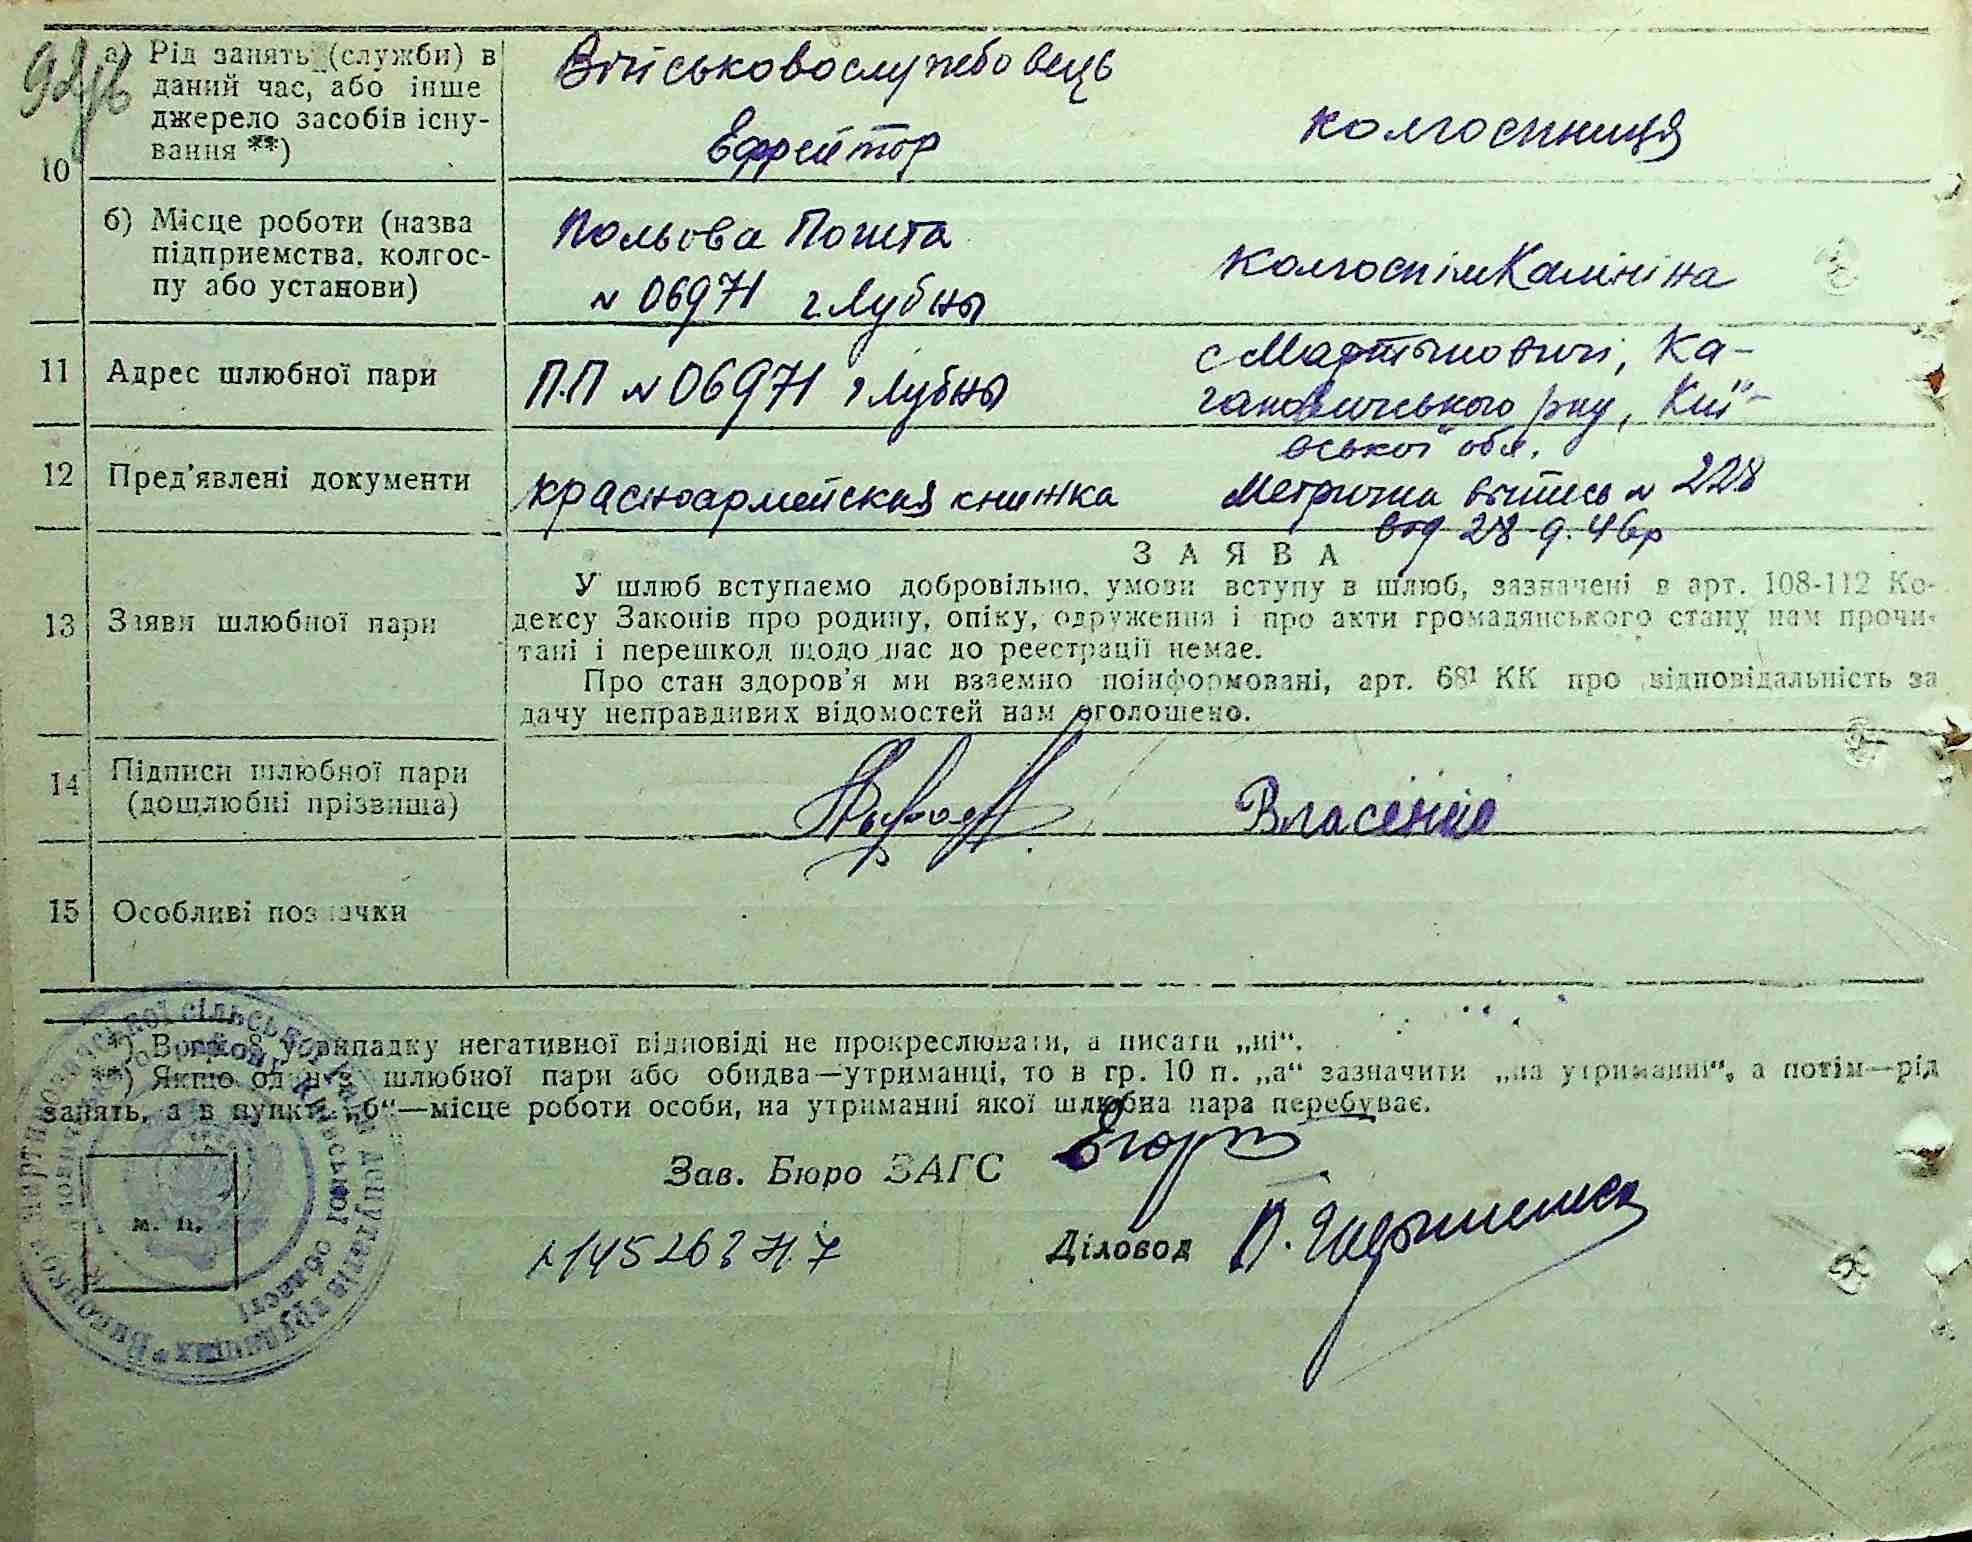 10
а) Рід занять (служби) в
даний час, або інше
джерело засобів існу-
вання **)
Військовослужбовець
Єфрейтор
колгоспниця
б) Місце роботи (назва
підприємства, колгос-
пу або установи)
Польова Пошта
№ 06971 г. Лубны
Колгосп ім Калініна
11 Адрес шлюбної пари
П.П № 06971 г Лубны
с Мартиновичі, Ка-
гановичського р-ну, Киї-
вської обл.
12 Пред'явлені документи
красноармейская книжка
Метрична випись № 228
від 28-9. 46р
13 Заяви шлюбної пари
ЗАЯВА
У шлюб вступаємо добровільно, умови вступу в шлюб, зазначені в арт. 108-112 Ко-
дексу Законів про родину, опіку, одруження і про акти громадянського стану нам прочи-
тані і перешкод щодо нас до реестрації немає.
Про стан здоров'я ми взаємно поінформовані, арт. 68¹ КК про відповідальність за
дачу неправдивих відомостей нам оголошено.
14 Підписи шлюбної пари
(дошлюбні прізвища)
15 Особливі позначки
*) В гр. 8 у випадку негативної відповіді не прокреслювати, а писати „ні“.
**) Якщо один з шлюбної пари або обидва—утриманці, то в гр. 10 п. „а“ зазначити „на утриманні“, а потім—рід
занять, а в пункті „б“—місце роботи особи, на утриманні якої шлюбна пара перебуває.
Зав. Бюро ЗАГС
Діловод
м. п.